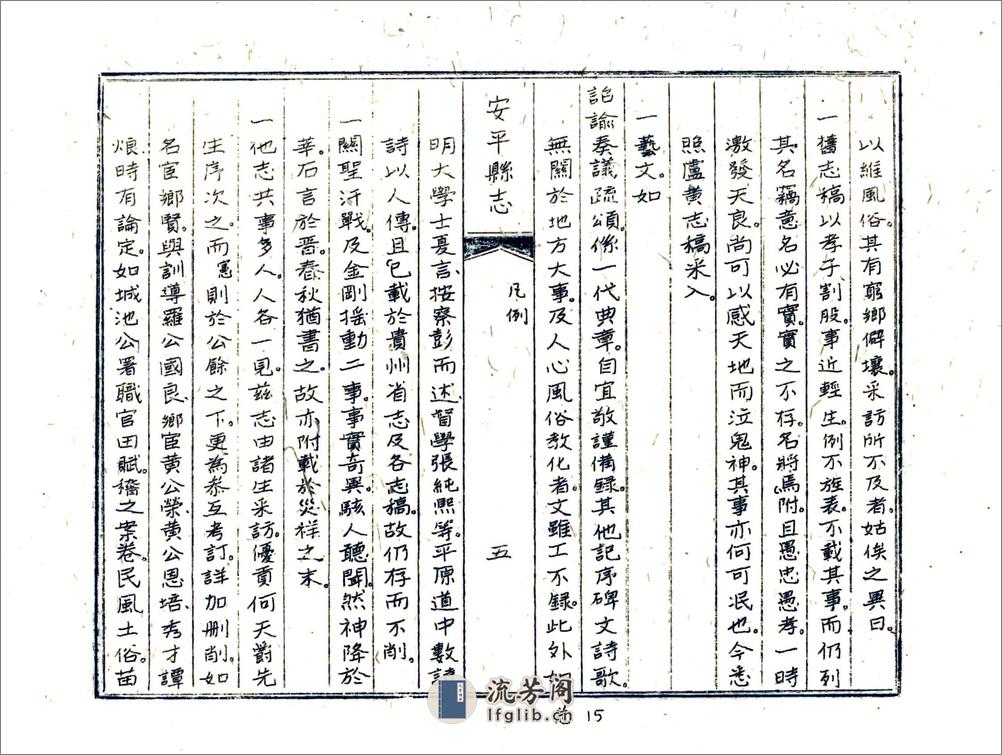 以維風俗。其有窮鄉僻壤。采訪所不及者。姑俟之異日。
一舊志稿以孝子割股。事近輕生。例不旌表。不載其事。而仍列
其名。竊意名必有實。實之不存。名將焉附。且愚忠愚孝。一時
激發天良。尚可以感天地而泣鬼神。其事亦何可泯也。今悉
照盧黃志稿采入。
一藝文。如
詔諭奏議疏頌。係一代典章。自宜敬謹備錄。其他記序碑文詩歌。
無關於地方大事。及人心風俗教化者。文雖工不錄。此外如
安平縣志
凡例
五
明大學士夏言。按察彭而述。督學張純熙等。平原道中數詩
詩以人傳。且已載於貴州省志及各志稿。故仍存而不削。
一關聖汗戰。及金剛搖動二事。事實奇異。駭人聽聞。然神降於
莘。石言於晋。春秋猶書之。故亦附載於災祥之末。
一他志共事多人。人各一見。茲志由諸生采訪。優貢何天爵先
生序次之。而憲則於公餘之下。更為叅互考訂。詳加刪削。如
名宦鄉賢。與訓導羅公國良。鄉宦黃公榮。黃公恩培。秀才譚
煩。時有論定。如城池公署職官田賦。稽之案卷。民風土俗。苗
流芳阁
lfglib.cn
15